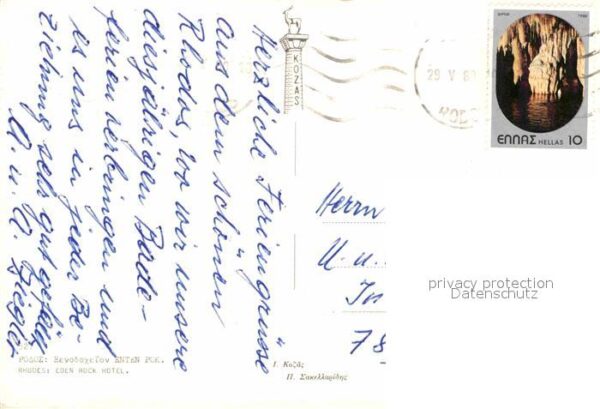 Herzliche Feriengrüsse
aus dem schönen
Rhodos, wo wir unsere
diesjährigen Bade-
ferien verbringen und
es uns in jeder Be-
ziehung sehr gut gefällt
A. u. A. Ziegler
KOZAS
29 V 8
ΡΟΔ
1980
ΕΛΛΑΣ HELLAS 10
Herrn
U. u.
In
78
privacy protection
Datenschutz
ΡΟΔΟΣ: Ξενοδοχεῖον ΕΝΤΕΝ ΡΟΚ.
RHODES: EDEN ROCK HOTEL.
Ι. Κοζᾶς
Π. Σακελλαρίδης